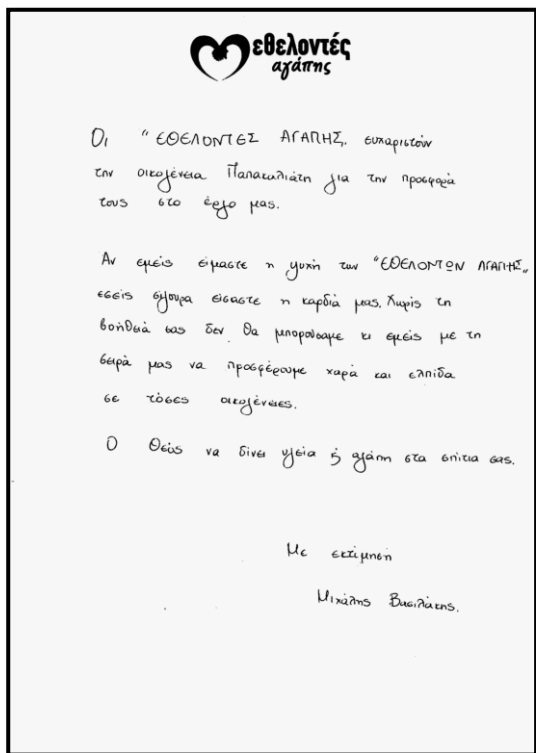 εθελοντές
αγάπης
Οι "ΕΘΕΛΟΝΤΕΣ ΑΓΑΠΗΣ„ ευχαριστούν
την οικογένεια Παπακαλιάτη για την προσφορά
τους στο έργο μας.
Αν εμείς είμαστε η ψυχή των "ΕΘΕΛΟΝΤΩΝ ΑΓΑΠΗΣ„
εσείς σίγουρα είσαστε η καρδιά μας. Χωρίς τη
βοήθειά σας δεν θα μπορούσαμε κι εμείς με τη
σειρά μας να προσφέρουμε χαρά και ελπίδα
σε τόσες οικογένειες.
Ο Θεός να δίνει υγεία & αγάπη στα σπίτια σας.
Με εκτίμηση
Μιχάλης Βασιλάκης.